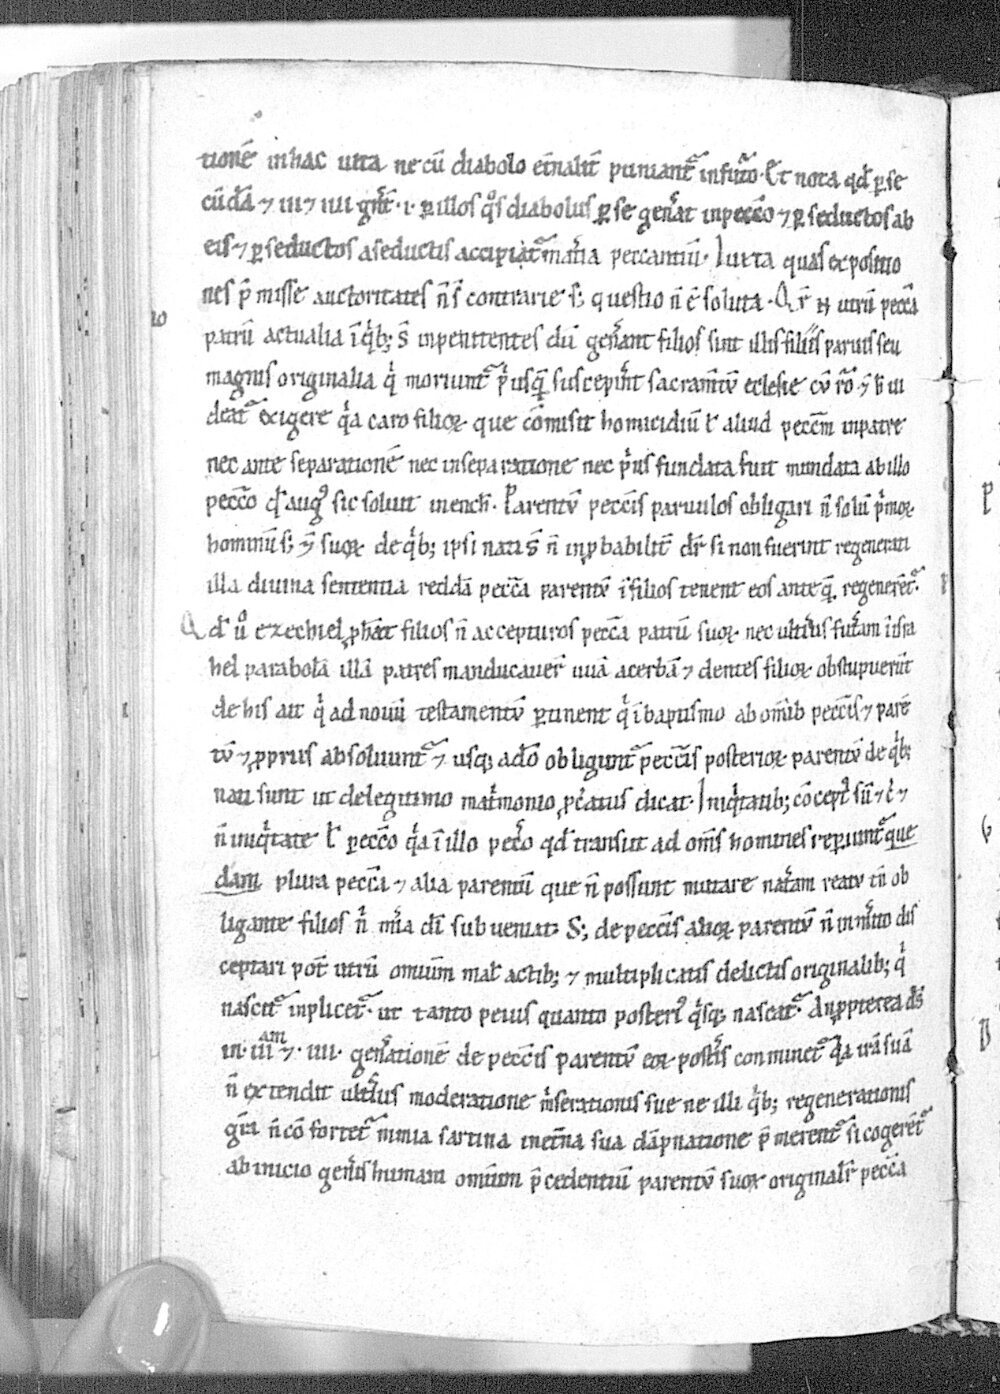 tionē in hac uita ne cū diabolo et̄nalit̄ puniant᷑ in futu᷑o. Et nota qd̄ p̱ se
cūdā ⁊ iii ⁊ iiii gn̄t̄ .i. p̱ illos qͦs diabolus p̱ se gen̄at in peccō ⁊ p̱ seductos ab
eis ⁊ p̱ seductos a seductis accipiāt᷑ mat̄ia peccantiū. Iuxta quas expositio
nes p̄misse auctoritates n̄ s̄ contrarie s; questio n̄ ē soluta. Qr̄ utrū pecc̄a
patrū actualia ī qͥb; s̄ inpenitentes dū gen̄ant filios sint illis filiis paruis seu
magnis originalia qͥ moriunt᷑ pͥusq̄ suscepīnt sacram̄tū eclesie
exigere qͥa caro filioꝝ que cōmisit homicidiū ł aliud pecc̄m in patre
nec ante separationē nec in separatione nec pͥus fundata fuit mundata ab illo
peccō qd̄ augꝰ sic soluit in ench̄. Parentū pecc̄is paruulos obligari n̄ solū pͥmoꝝ
hominū s; ⁊̄ suoꝝ de qͥb; ipsi nati s̄ n̄ inp̱babilit̄ dr̄ si non fuerint regenerati
illa diuina sententia reddā pecc̄a parentū ī filios tenent eos ante q̄ regenerēt᷑.
Qd̄ uͦ ezechiel ꝓph̄at filios n̄ accepturos pecc̄a patrū suoꝝ nec ulteͥius fut̄am ī isra
hel parabolā illā patres manducauer̄ uuā acerbā ⁊ dentes filioꝝ obstupuerūt
de his ait qͥ ad nouū testamentū p̱tinent qͥ ī baptismo ab om̄ib pecc̄is ⁊ parē
tū ⁊ ꝓpriis absoluunt᷑ ⁊ usq; adō obligunt᷑ pecc̄is posterioꝝ parentū de qͥb;
nati sunt ut de legitimo mat̄monio ꝓc̄atus dicat. Iniqͥtatib; cōcept᷒ sū ⁊ cͥ ⁊
n̄ iniqͥtate ł peccō qͥa ī illo pecc̄o qd̄ transiit ad om̄s homines rep̱iunt᷑ que
dam plura pecc̄a ⁊ alia parentū que n̄ possunt mutare nat̄am reatu tn̄ ob
ligante filios nͥ mͥa dī subueniat. S; de pecc̄is alioꝝ parentū n̄ inm̄ito dis
ceptari pot̄ utrū omiūm mal̄ actib; ⁊ multiplicatis delictis originalib; qͥ
nascit᷑ inplicet᷑. ut tanto peius quanto posteriꝰ qͥsq; nascat᷑. An ꝓpterea ds̄
in .iiiam ⁊ .iiii. gen̄ationē de pecc̄is parentū eoꝝ post̄is conminet᷑ qͥa irā suā
n̄ extendit ult̄ius moderatione m̄serationis sue ne illi qͥb; regenerationis
gr̄a n̄ cōfertet᷑ nimia sarcina in et̄na sua dāpnatione p̄merent᷑ si cogerēt᷑
ab inicio gen̄is humani omiūm p̄cedentiū parentū suoꝝ originalr̄ pecc̄a